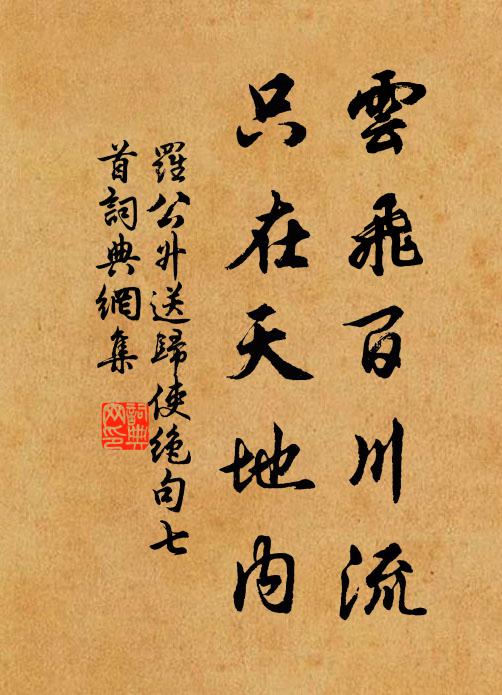 雲飛百川流
只在天地內
羅公升送歸使絕句七
首詞典網集
詞典
网印